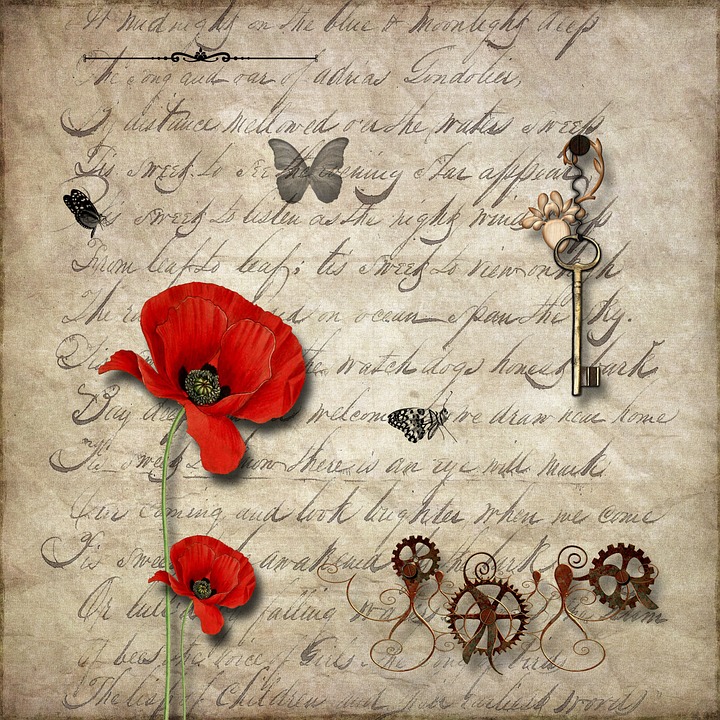 At midnight on the blue & Moonlight deep
The song and oar of adrias Gondolier,
By distance Mellowed o'er the waters sweep
Tis sweet to see the evening Star appear
Tis sweet to listen as the night winds
From leaf to leaf; tis sweet to view on high
The on ocean span the sky.
the watch dogs honest bark
Bay welcome we draw near home
Tis sweet to know there is an eye will mark
Our coming and look brighter when we come
Tis sweet awakened the lark
Or falling
of bees, the voice of Girls, the song of birds
The lisp of Children and their earliest words